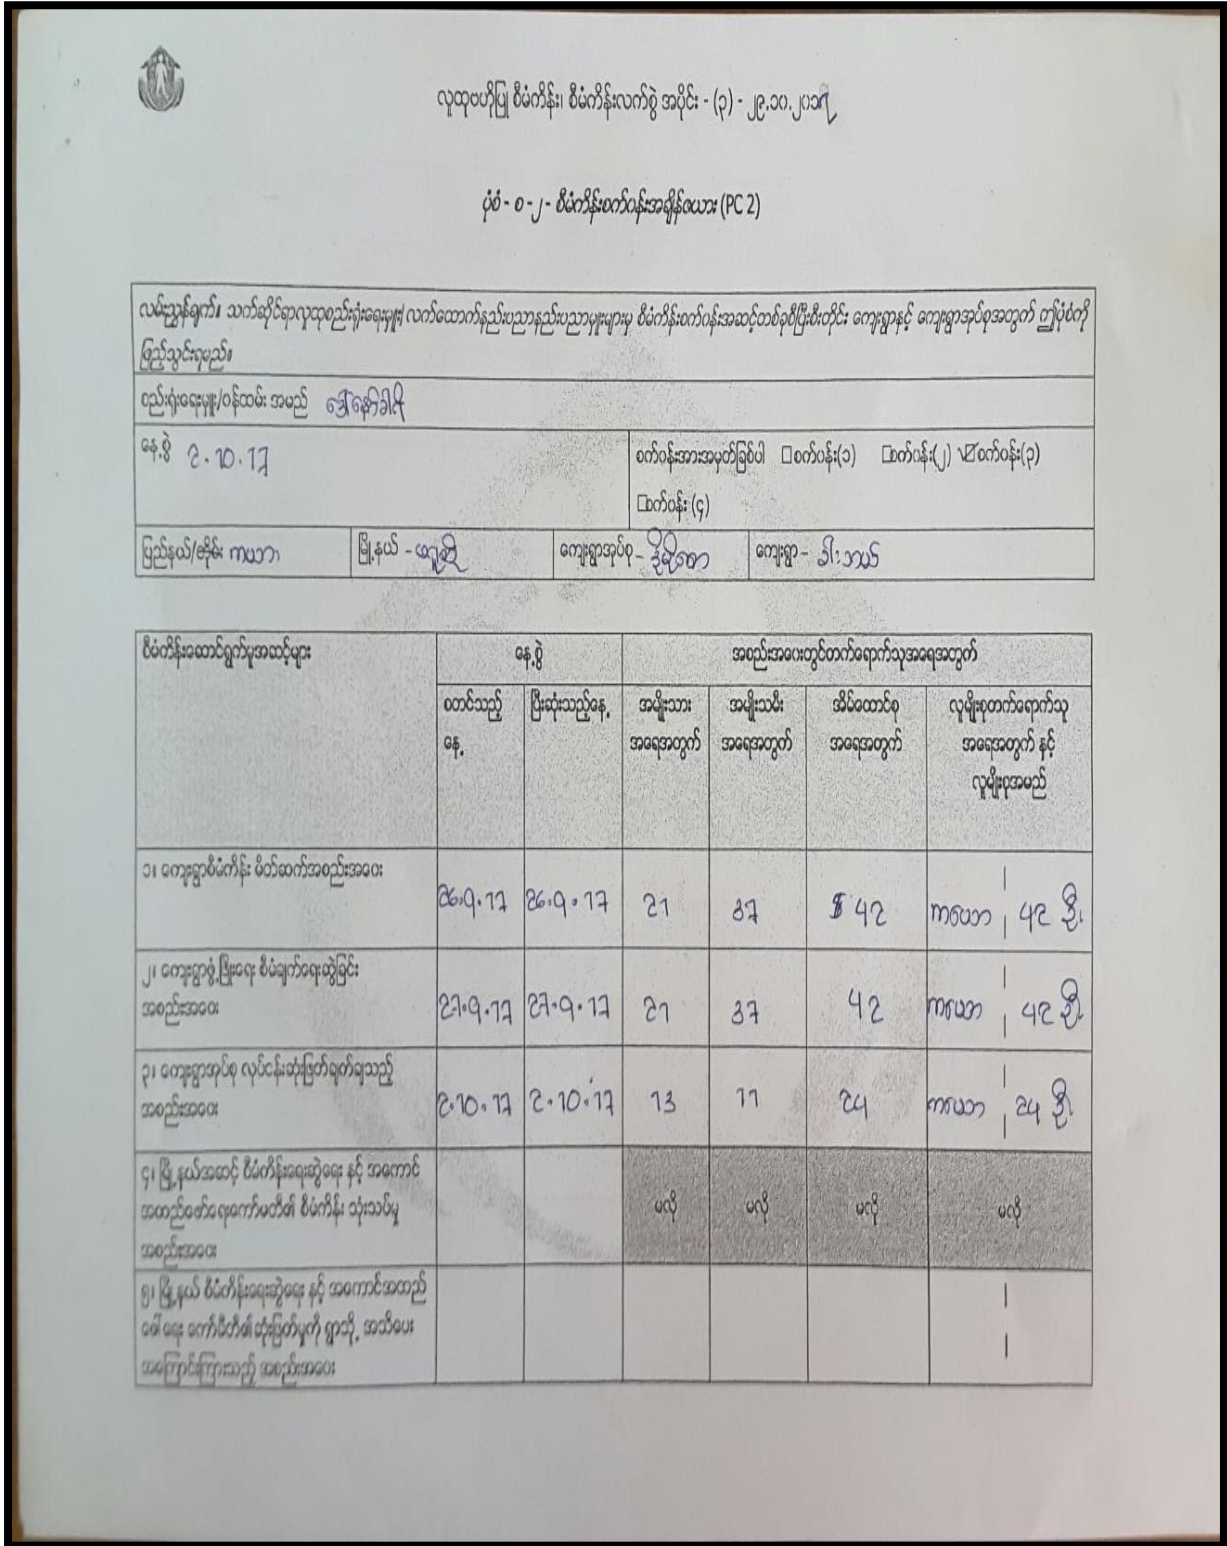 လူထုဗဟိုပြု စီမံကိန်း၊ စီမံကိန်းလက်စွဲ အပိုင်း - (၃) - ၂၉.၁၀.၂၀၁၅
ပုံစံ - စ -၂ - စီမံကိန်းစက်ဝန်းအချိန်ဇယား (PC 2)
လမ်းညွှန်ချက်။ သက်ဆိုင်ရာလူထုစည်းရုံးရေးမှူး/ လက်ထောက်နည်းပညာနည်းပညာမှူးများမှ စီမံကိန်းစက်ဝန်းအဆင့်တစ်ခုစီပြီးစီးတိုင်း ကျေးရွာနှင့် ကျေးရွာအုပ်စုအတွက် ဤပုံစံကို
ဖြည့်သွင်းရမည်။
စည်းရုံးရေးမှူး/ဝန်ထမ်း အမည်
နေ့စွဲ 2.10.17
စက်ဝန်းအားအမှတ်ခြစ်ပါ □စက်ဝန်း(၁) □စက်ဝန်း(၂) ☑စက်ဝန်း(၃)
□စက်ဝန်း (၄)
ပြည်နယ်/တိုင်း ကယား မြို့နယ် - ဖရူဆို ကျေးရွာအုပ်စု - ကျေးရွာ -
စီမံကိန်းဆောင်ရွက်မှုအဆင့်များ နေ့စွဲ အစည်းအဝေးတွင်တက်ရောက်သူအရေအတွက်
စတင်သည့် ပြီးဆုံးသည့်နေ့ အမျိုးသား အမျိုးသမီး အိမ်ထောင်စု လူမျိုးစုတက်ရောက်သူ
နေ့ အရေအတွက် အရေအတွက် အရေအတွက် အရေအတွက် နှင့်
လူမျိုးစုအမည်
၁၊ ကျေးရွာစီမံကိန်း မိတ်ဆက်အစည်းအဝေး
26.9.17 26.9.17 21 37 42 ကယား 42 ဦး
၂၊ ကျေးရွာဖွံ့ဖြိုးရေး စီမံချက်ရေးဆွဲခြင်း
အစည်းအဝေး 27.9.17 27.9.17 21 37 42 ကယား 42 ဦး
၃၊ ကျေးရွာအုပ်စု လုပ်ငန်းဆုံးဖြတ်ချက်ချသည့်
အစည်းအဝေး 2.10.17 2.10.17 13 11 24 ကယား 24 ဦး
၄၊ မြို့နယ်အဆင့် စီမံကိန်းရေးဆွဲရေး နှင့် အကောင်
အထည်ဖော်ရေးကော်မတီ၏ စီမံကိန်း သုံးသပ်မှု မလို မလို မလို မလို
အစည်းအဝေး
၅၊ မြို့နယ် စီမံကိန်းရေးဆွဲရေး နှင့် အကောင်အထည်
ဖေါ်ရေး ကော်မီတီ၏ဆုံးဖြတ်မှုကို ရွာသို့ အသိပေး
အကြောင်းကြားသည့် အစည်းအဝေး